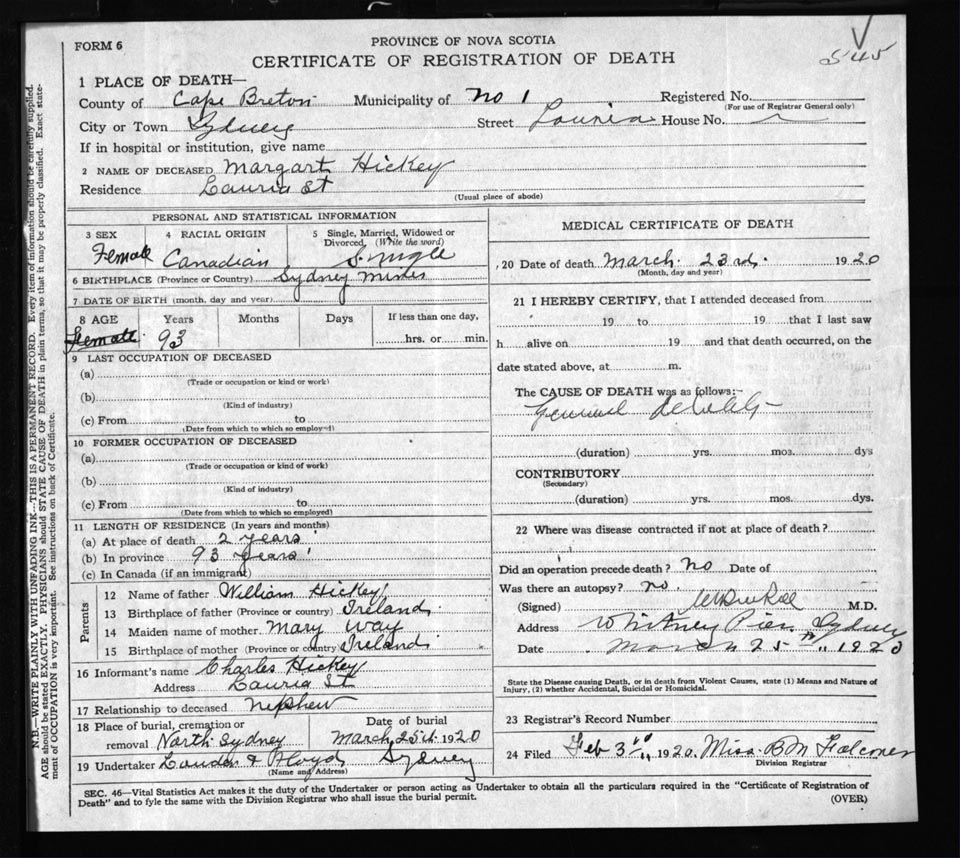 545
FORM 6
PROVINCE OF NOVA SCOTIA
CERTIFICATE OF REGISTRATION OF DEATH
1 PLACE OF DEATH—
County of Cape Breton Municipality of No 1 Registered No.
(For use of Registrar General only)
City or Town Sydney Street House No.
If in hospital or institution, give name
2 NAME OF DECEASED Margart Hickey
Residence Lauria St
(Usual place of abode)
PERSONAL AND STATISTICAL INFORMATION
3 SEX Female
4 RACIAL ORIGIN Canadian
5 Single, Married, Widowed or Divorced, (Write the word) Single
6 BIRTHPLACE (Province or Country) Sydney Mines
7 DATE OF BIRTH (month, day and year)
8 AGE Years Months Days If less than one day,
Female 93 hrs. or min.
9 LAST OCCUPATION OF DECEASED
(a)
(Trade or occupation or kind or work)
(b)
(Kind of industry)
(c) From to
(Date from which to which so employed)
10 FORMER OCCUPATION OF DECEASED
(a)
(Trade or occupation or kind of work)
(b)
(Kind of industry)
(c) From to
(Date from which to which so employed)
11 LENGTH OF RESIDENCE (In years and months)
(a) At place of death 2 years
(b) In province 93 years
(c) In Canada (if an immigrant)
Parents
12 Name of father William Hickey
13 Birthplace of father (Province or country) Ireland
14 Maiden name of mother Mary Way
15 Birthplace of mother (Province or country) Ireland
16 Informant's name Charles Hickey
Address Lauria St
17 Relationship to deceased Nephew
18 Place of burial, cremation or Date of burial
removal North Sydney March 25th 1920
19 Undertaker Sydney
(Name and Address)
MEDICAL CERTIFICATE OF DEATH
20 Date of death March 23rd. 1920
(Month, day and year)
21 I HEREBY CERTIFY, that I attended deceased from
19 to 19 that I last saw
h alive on 19 and that death occurred, on the
date stated above, at m.
The CAUSE OF DEATH was as follows:-
General debility
(duration) yrs. mos. dys
CONTRIBUTORY
(Secondary)
(duration) yrs. mos. dys.
22 Where was disease contracted if not at place of death?
Did an operation precede death? No Date of
Was there an autopsy? no
(Signed) M.D.
Address Whitney Pier Sydney
Date March 25th 1920
State the Disease causing Death, or in death from Violent Causes, state (1) Means and Nature of
Injury, (2) whether Accidental, Suicidal or Homicidal.
23 Registrar's Record Number
24 Filed Feb 3rd 1920. Miss. B M Falconer
Division Registrar
SEC. 46—Vital Statistics Act makes it the duty of the Undertaker or person acting as Undertaker to obtain all the particulars required in the "Certificate of Registration of
Death" and to fyle the same with the Division Registrar who shall issue the burial permit. (OVER)
N.B.—WRITE PLAINLY WITH UNFADING INK—THIS IS A PERMANENT RECORD. Every item of information should be carefully supplied.
AGE should be stated EXACTLY. PHYSICIANS should STATE CAUSE OF DEATH in plain terms, so that it may be properly classified. Exact state-
ment of OCCUPATION is very important. See instructions on back of Certificate.